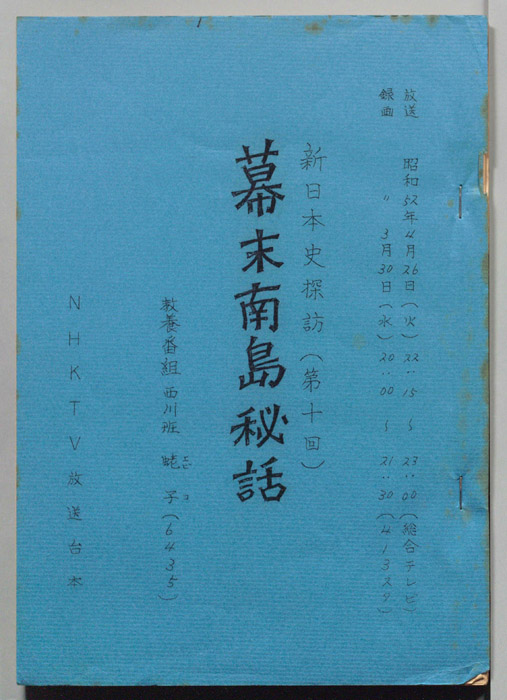 放送 昭和52年4月26日(火)22:15～23:00(総合テレビ)
録画 〃 3月30日(水)20:00～21:30(413スタ)
新日本史探訪(第十回)
幕末南島秘話
教養番組 西川班 子(6435)
コ
NHKTV放送台本